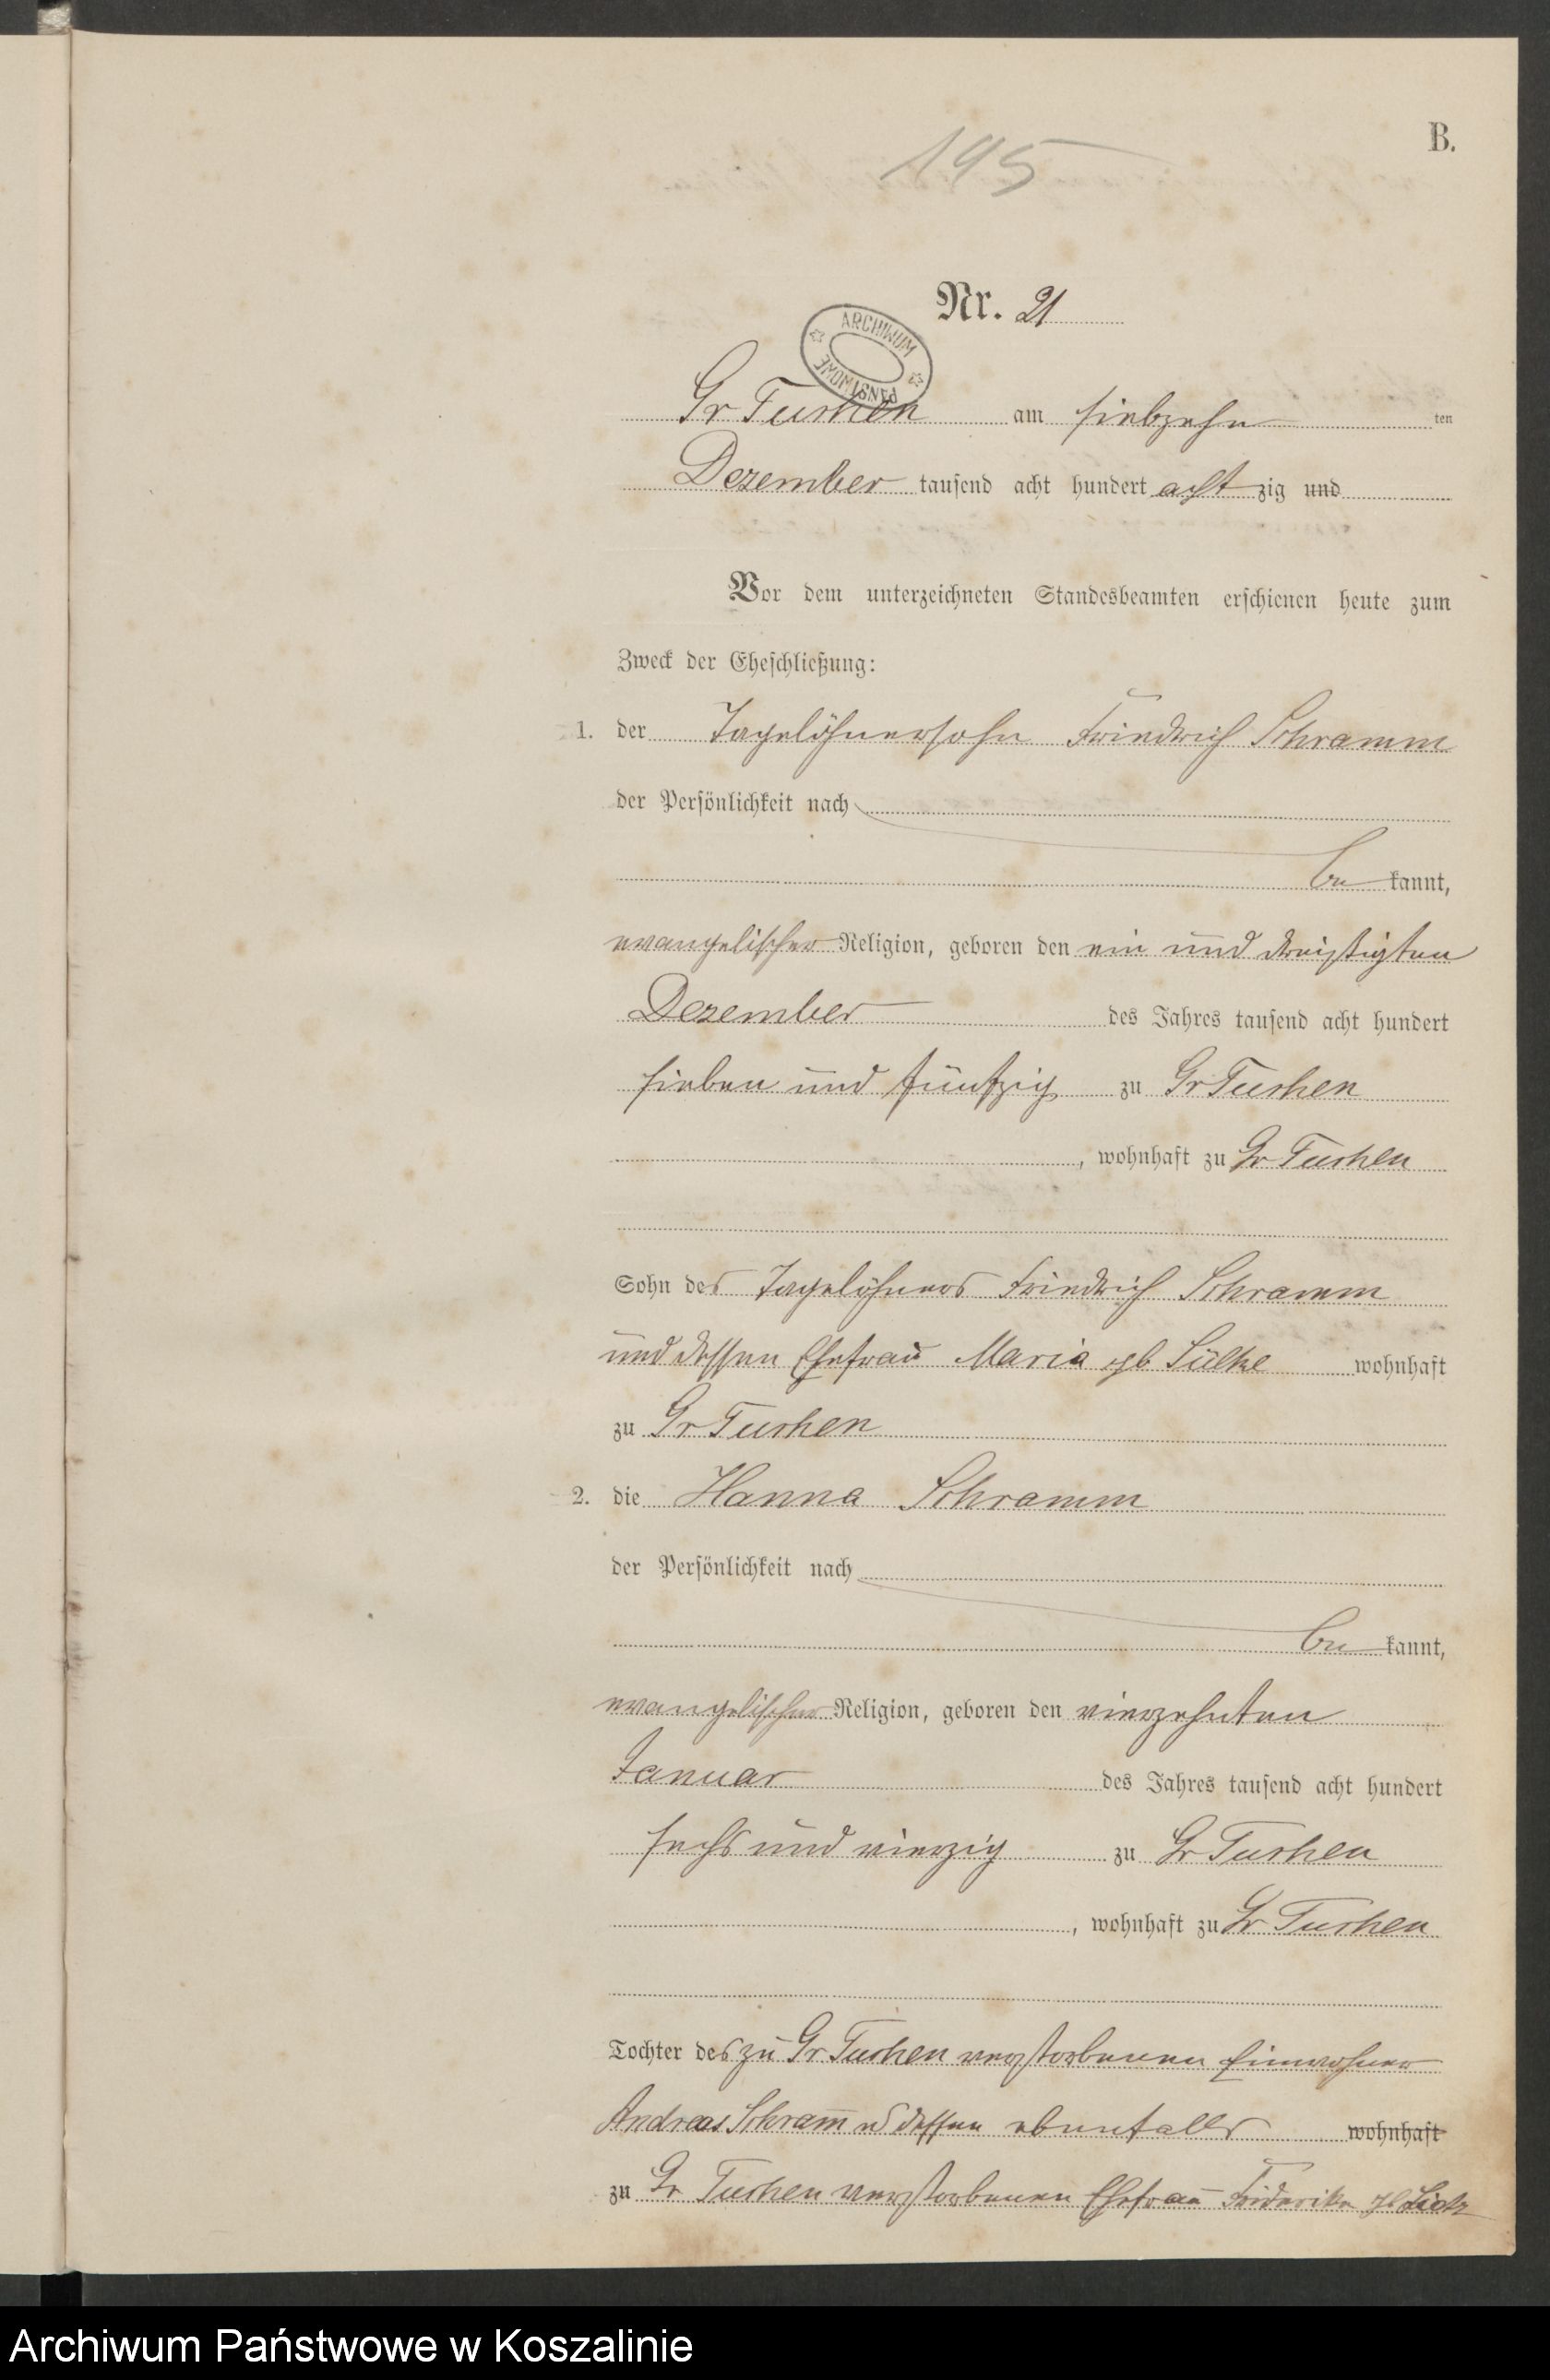 B.
195
Nr. 21
ARCHIWUM PAŃSTWOWE
Gr Tuchen am siebzehn ten
Dezember tausend acht hundert acht zig und
Vor dem unterzeichneten Standesbeamten erschienen heute zum
Zweck der Eheschließung:
1. der Tagelöhnersohn Friedrich Schramm
der Persönlichkeit nach
be kannt,
evangelischer Religion, geboren den ein und dreißigten
Dezember des Jahres tausend acht hundert
sieben und fünfzig zu Gr Tuchen
, wohnhaft zu Gr Tuchen
Sohn des Tagelöhners Friedrich Schramm
und dessen Ehefrau Maria gb Sülke wohnhaft
zu Gr Tuchen
2. die Hanna Schramm
der Persönlichkeit nach
be kannt,
evangelischer Religion, geboren den vierzehnten
Januar des Jahres tausend acht hundert
sechs und vierzig zu Gr Tuchen
, wohnhaft zu Gr Tuchen
Tochter des zu Gr Tuchen verstorbenen Einwohner
Andreas Schram̅ u dessen ebenfalls wohnhaft
zu Gr Tuchen verstorbenen Ehefrau Friderike gb
Archiwum Państwowe w Koszalinie